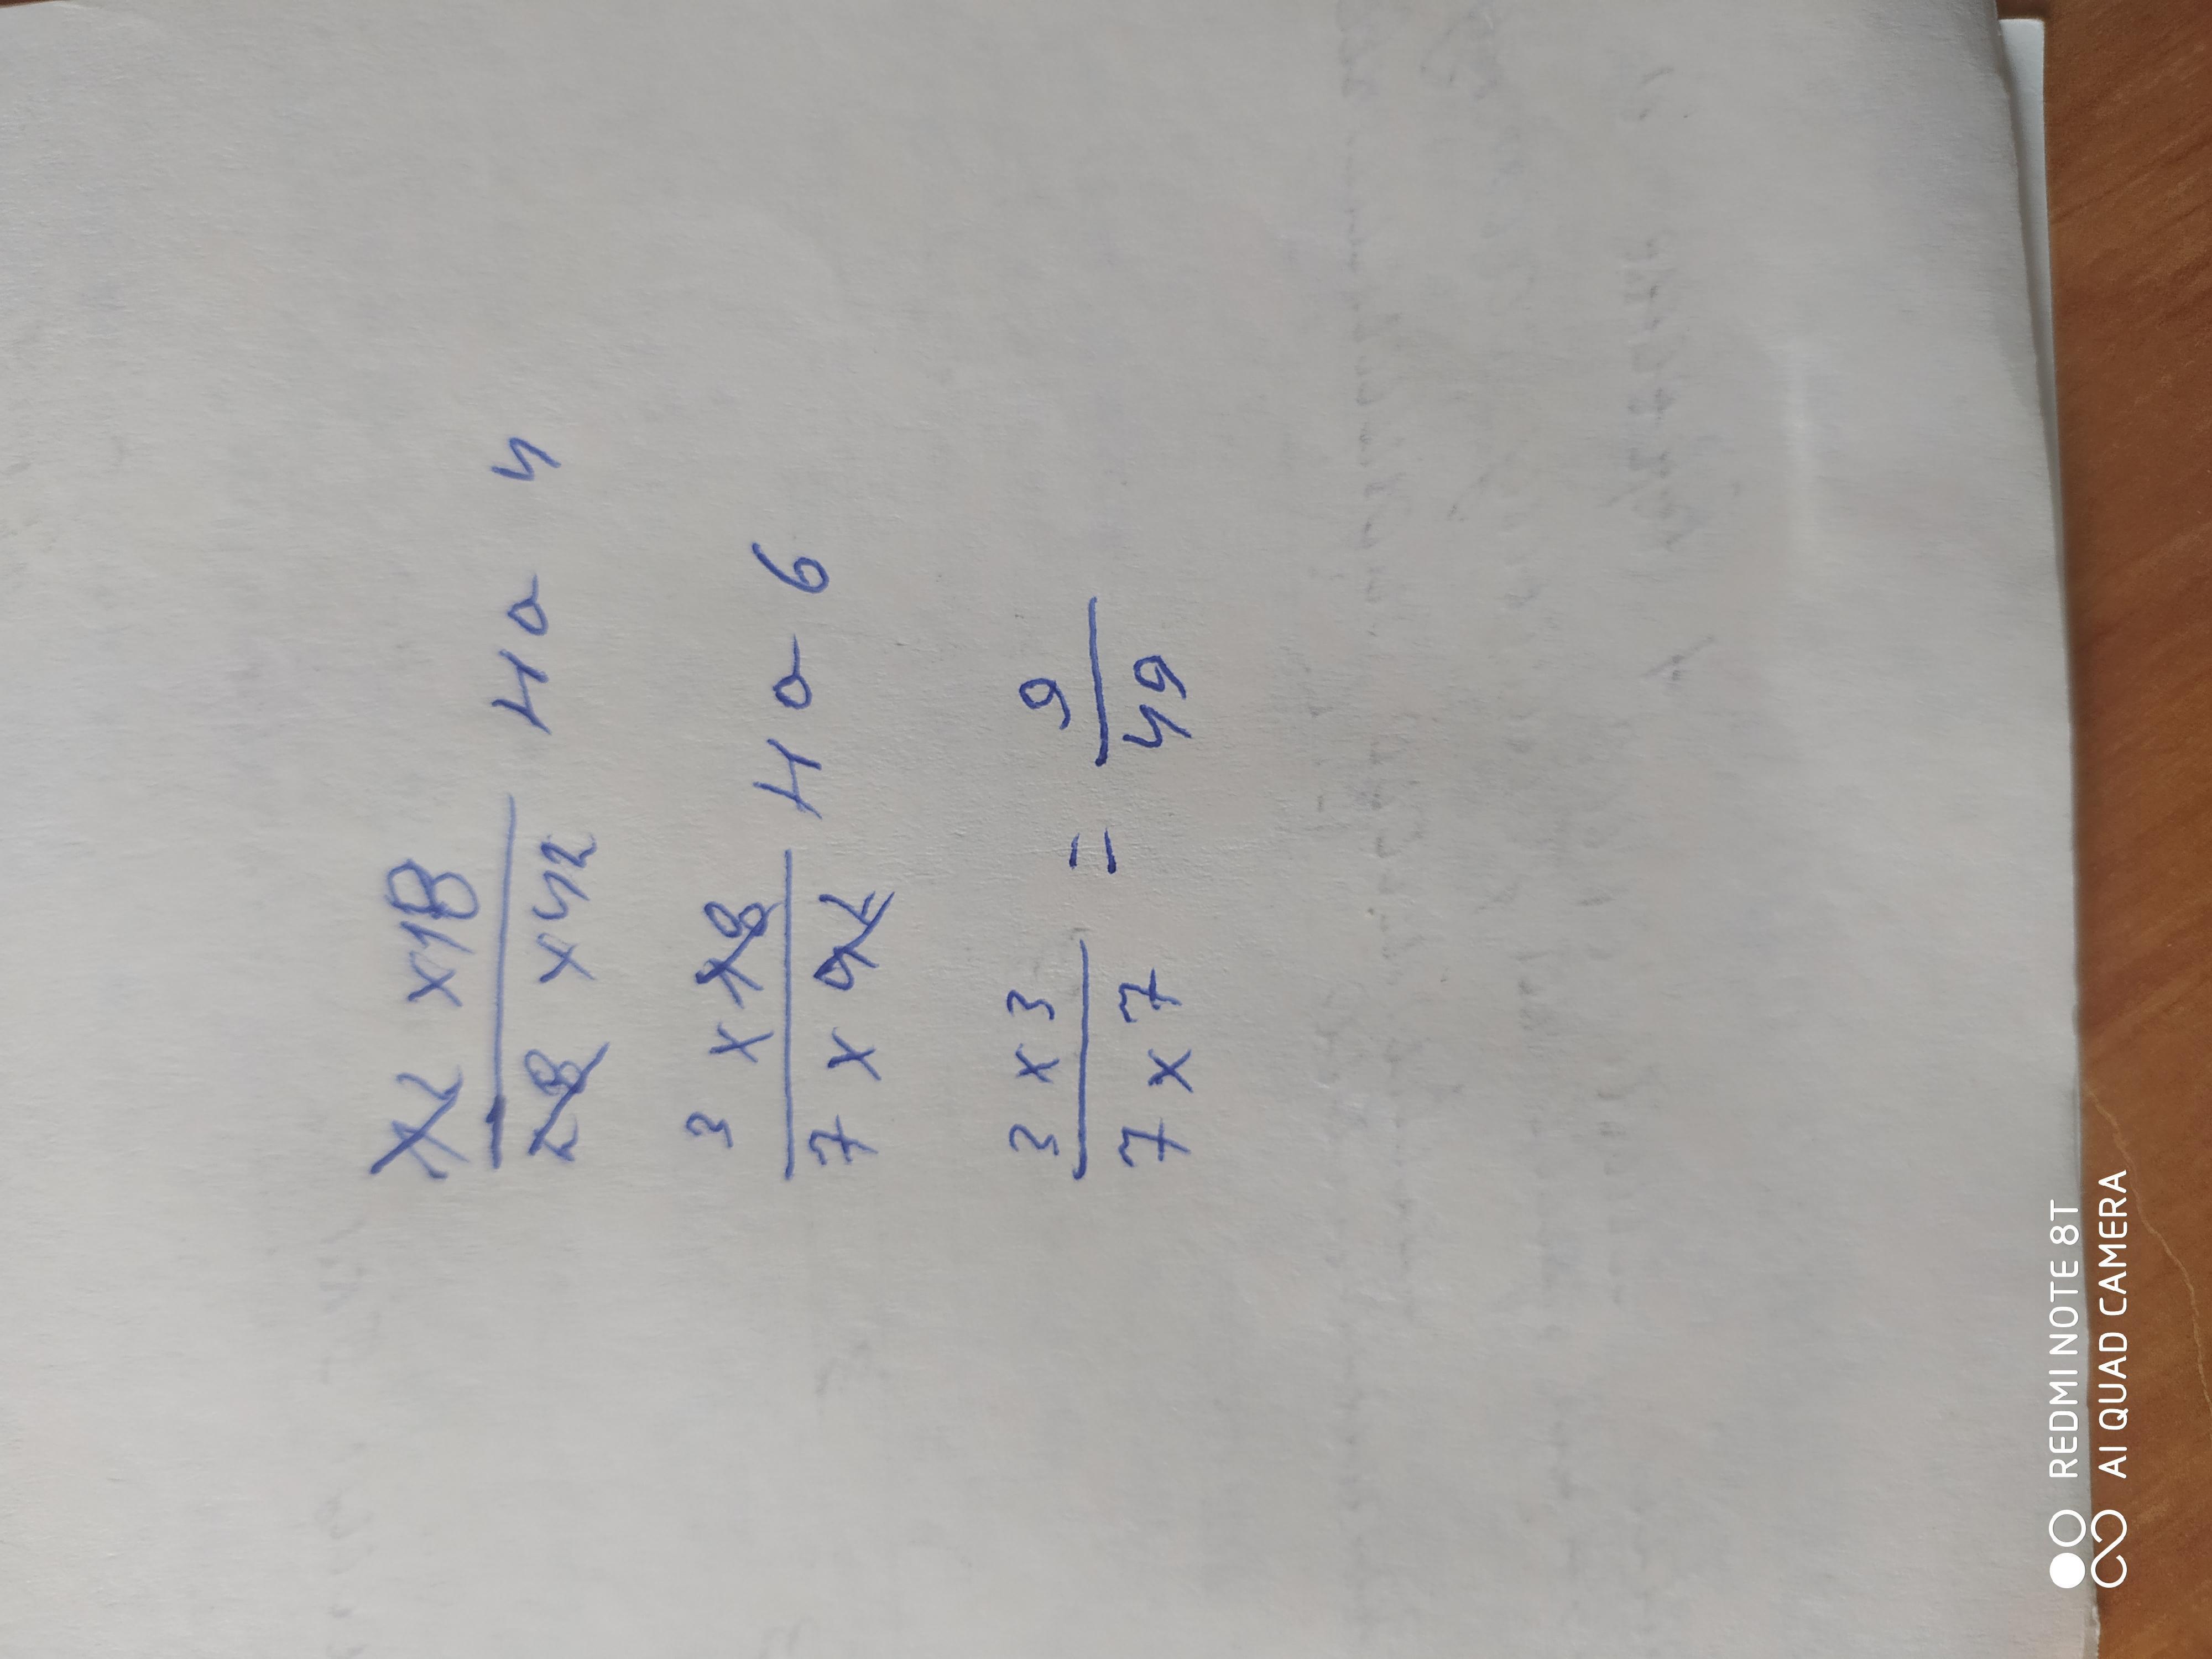 12 x 18
28 x 42 на 4
3 x 18
7 x 42 на 6
3 x 3 = 9
7 x 7 49
REDMI NOTE 8T
AI QUAD CAMERA